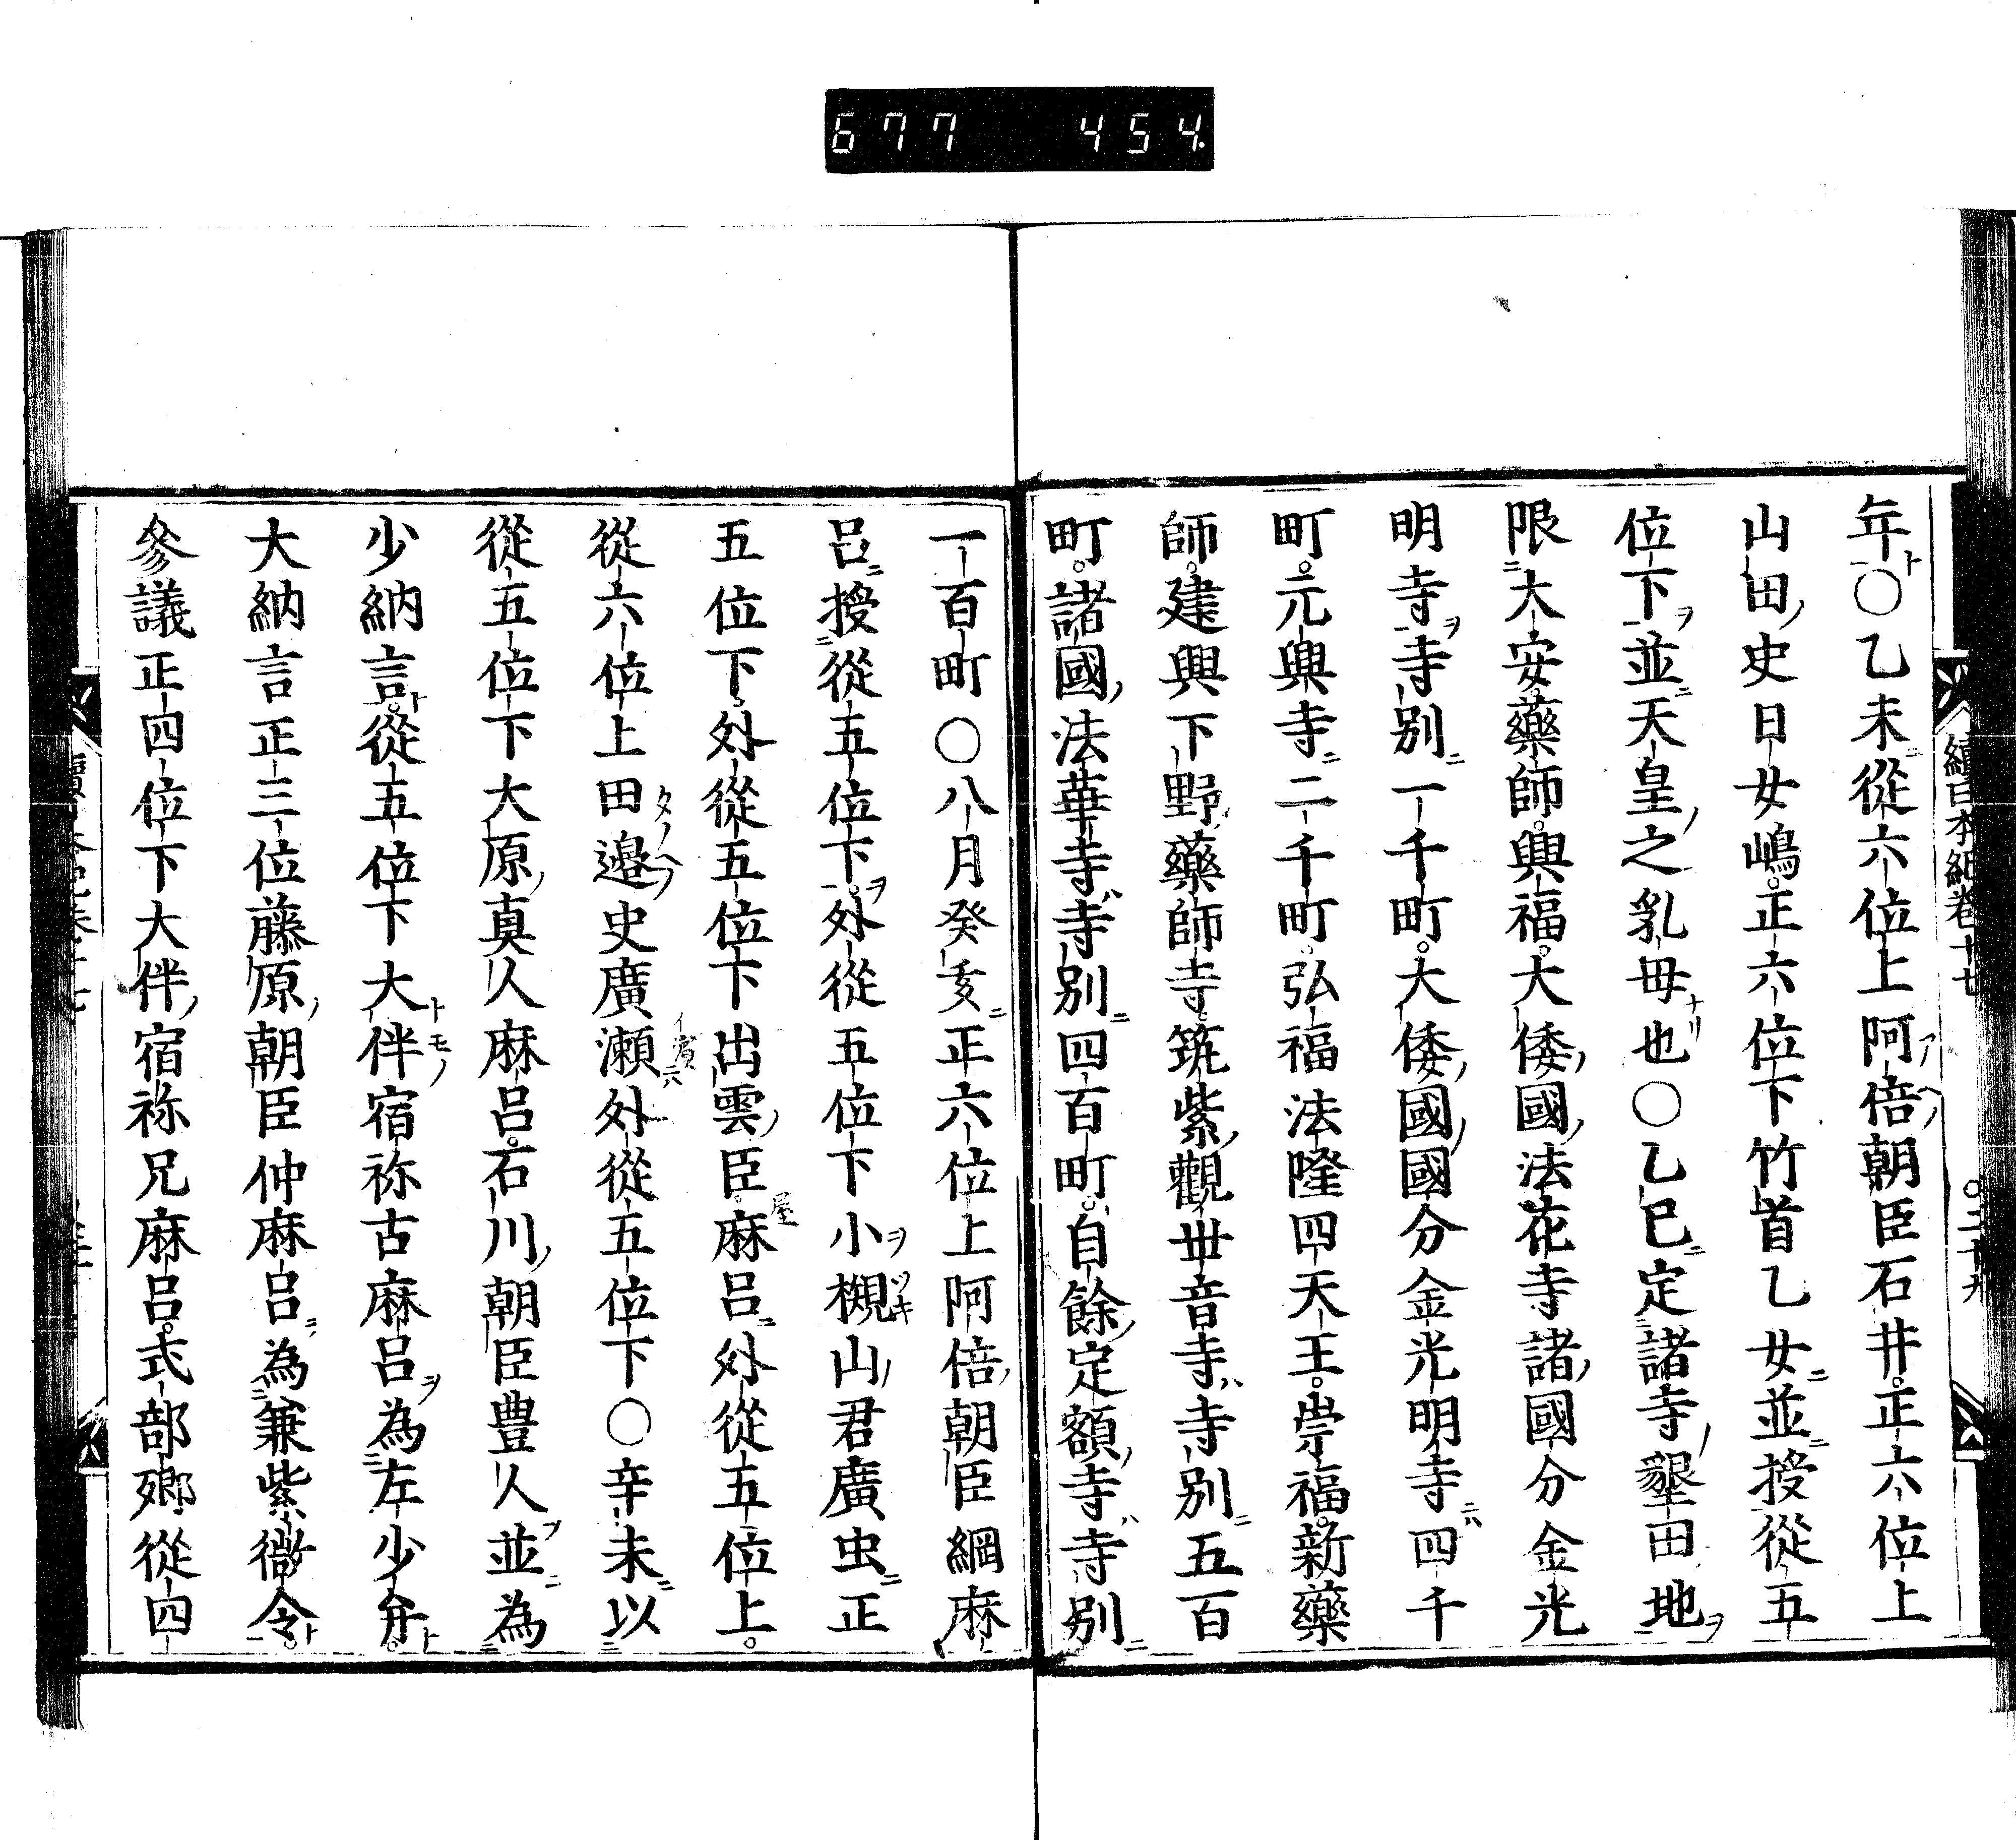 677 454.
續日本紀卷十七
○三十九
年○乙未從六位上阿倍朝臣石井。正六位上
山田史日女嶋。正六位下竹首乙女並授從五
位下並天皇之乳母也○乙巳定諸寺墾田地
限大安。藥師。興福。大倭國法花寺諸國分金光
明寺寺別一千町。大倭國國分金光明寺四千
町。元興寺二千町。弘福法隆四天王。崇福。新藥
師。建興下野藥師寺。筑紫觀世音寺寺別五百
町。諸國法華寺寺別四百町。自餘定額寺寺別
一百町○八月癸亥正六位上阿倍朝臣綱麻
呂授從五位下。外從五位下小槻山君廣虫正
五位下。外從五位下出雲臣屋麻呂外從五位上。
從六位上田邊史廣瀬外從五位下○辛未以
從五位下大原真人麻呂。石川朝臣豊人並為
少納言。從五位下大伴宿祢古麻呂為左少弁。
大納言正三位藤原朝臣仲麻呂為兼紫微令。
參議正四位下大伴宿祢兄麻呂。式部卿從四